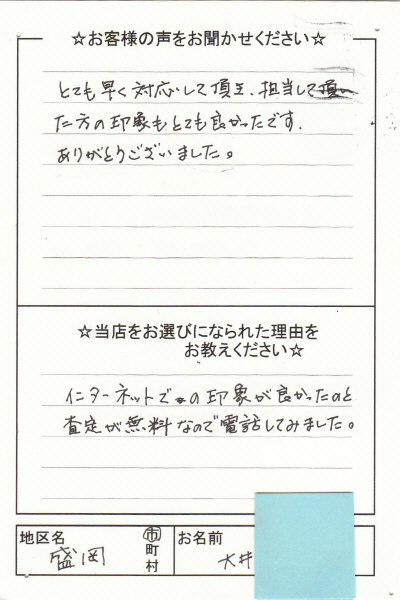 ☆お客様の声をお聞かせください☆
とても早く対応して頂き、担当して頂い
た方の印象もとても良かったです.
ありがとうございました。
☆当店をお選びになられた理由を
お教えください☆
インターネットでの印象が良かったのと
査定が無料なので電話してみました。
地区名 盛岡 市町村 お名前 大井